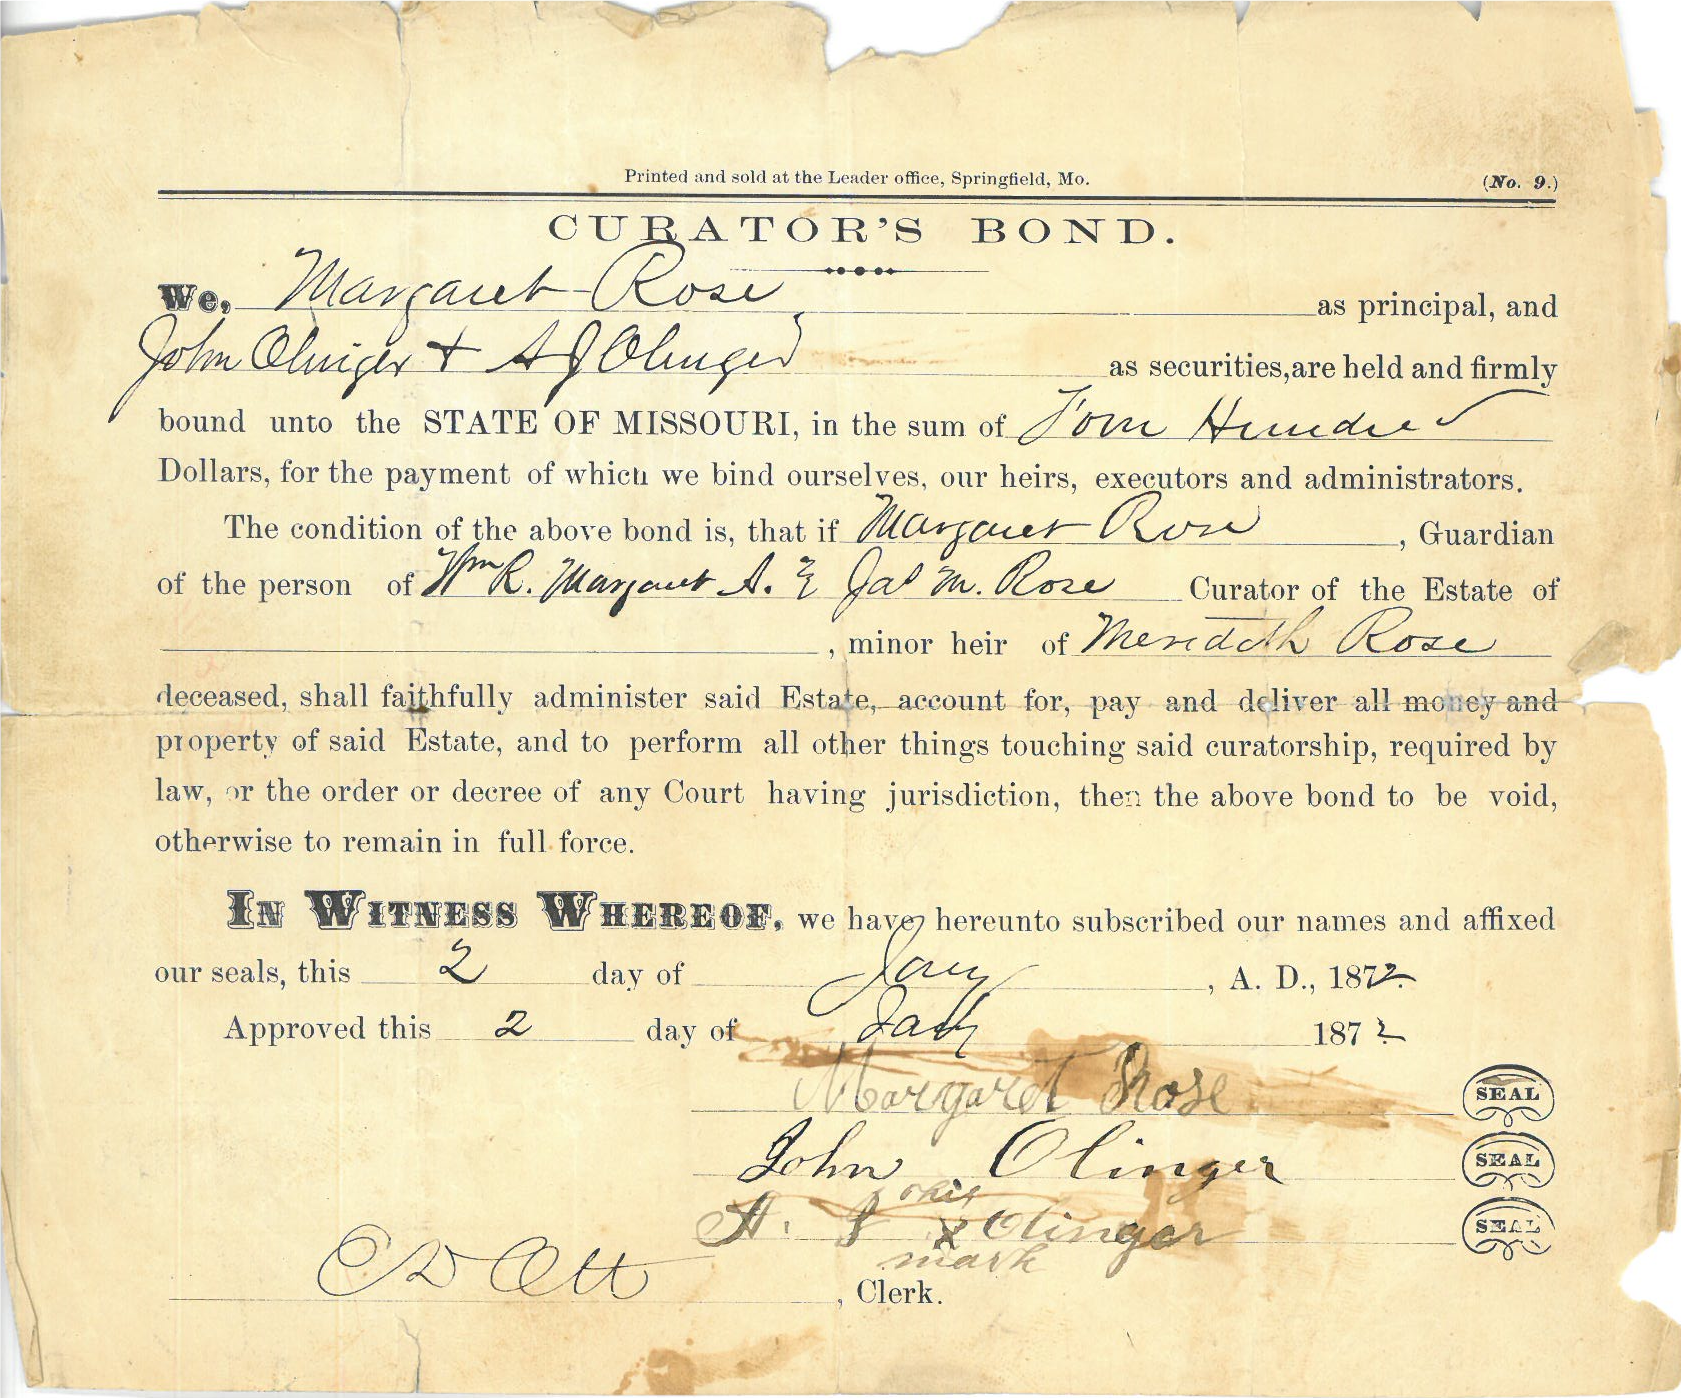 Printed and sold at the Leader office, Springfield, Mo. (No. 9.)
CURATOR'S BOND.
We, Margaret Rose as principal, and
John Olinger + A J Olinger as securities, are held and firmly
bound unto the STATE OF MISSOURI, in the sum of Four Hundred
Dollars, for the payment of which we bind ourselves, our heirs, executors and administrators.
The condition of the above bond is, that if Margaret Rose, Guardian
of the person of Wm R. Margaret A. & Jas M. Rose Curator of the Estate of
, minor heir of Meridith Rose
deceased, shall faithfully administer said Estate, account for, pay and deliver all money and
property of said Estate, and to perform all other things touching said curatorship, required by
law, or the order or decree of any Court having jurisdiction, then the above bond to be void,
otherwise to remain in full force.
IN WITNESS WHEREOF, we have hereunto subscribed our names and affixed
our seals, this 2 day of Jany, A. D., 1872.
Approved this 2 day of Jany 1872
Margaret Rose SEAL
John Olinger SEAL
his
A. J x Olinger SEAL
mark
C D Ott, Clerk.